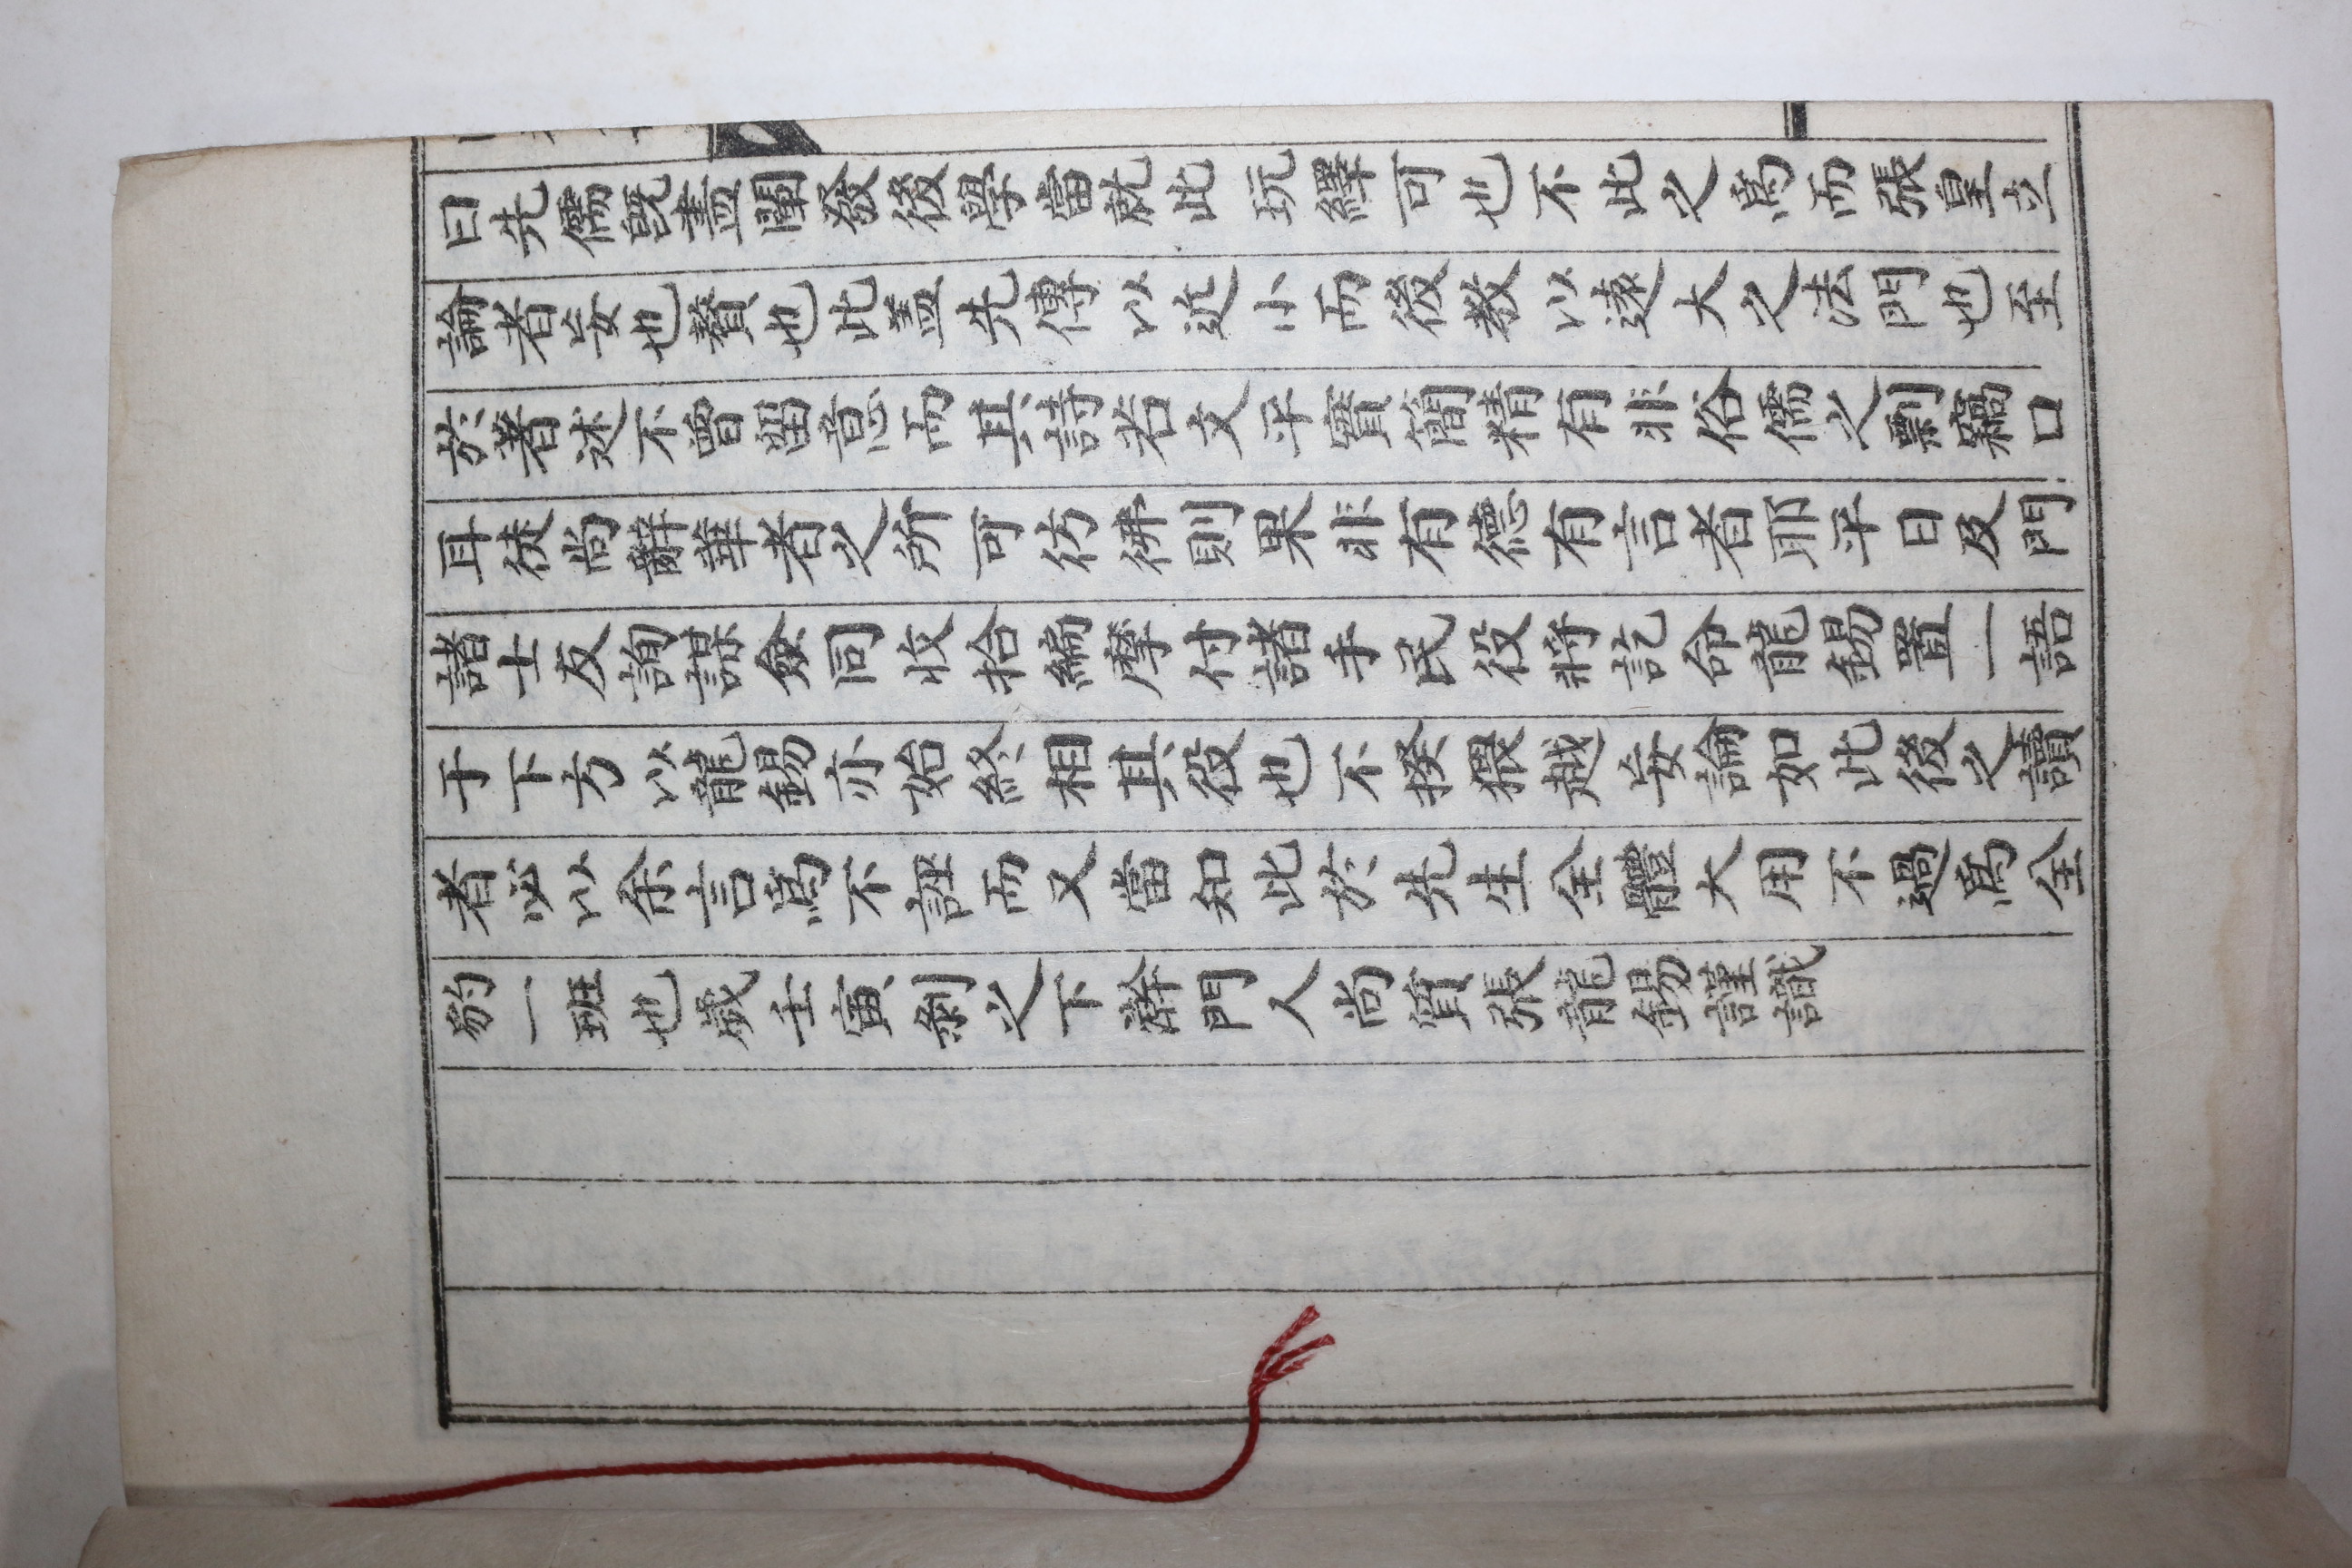 曰先儒旣盡闡發後學當就此玩繹可也不此之爲而張皇立
論者妄也贅也此盖先傳以近小而後教以遠大之法門也至
於著述不曾留意而其詩若文平實簡精有非俗儒之剽竊口
耳徒尚辭華者之所可彷彿則果非有德有言者耶平日及門
諸士友詢謀僉同收拾編摩付諸手民役將訖命龍錫置一語
于下方以龍錫亦始終相其役也不揆猥越妄論如此後之讀
者必以余言爲不誣而又當知此於先生全體大用不過爲全
豹一班也歲壬寅剝之下澣門人尚質張龍錫謹識